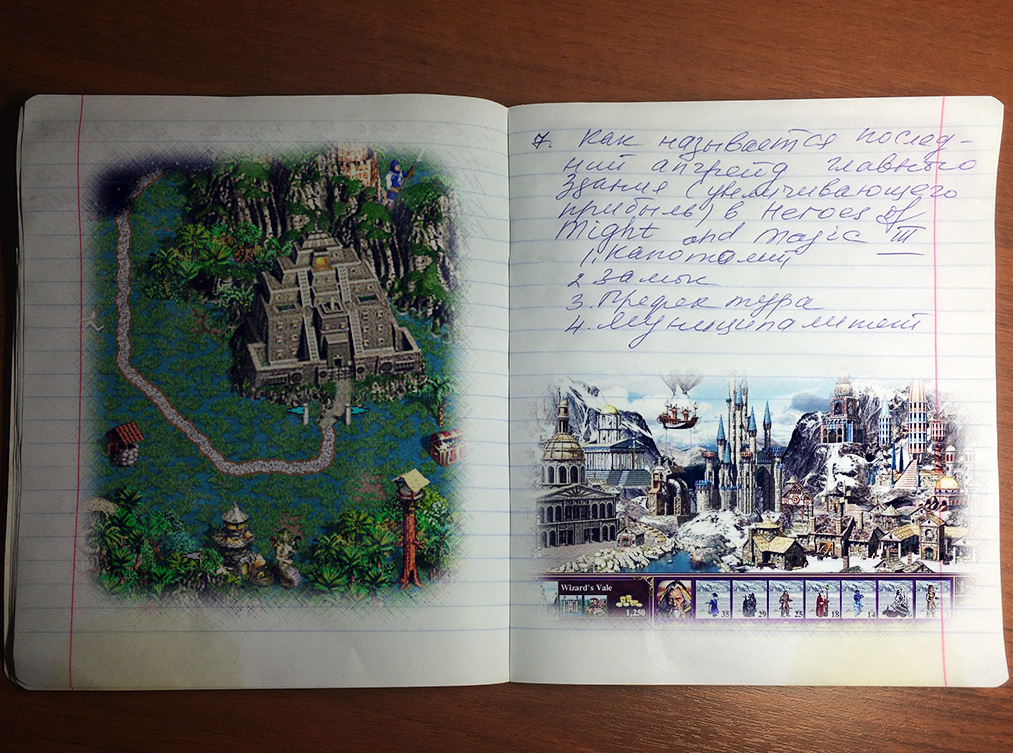 7. Как называется послед-
ний апгрейд главного
здания (увеличивающего
прибыль) в Heroes of
Might and Magic III
1. Капитолий
2 Замок
3. Префектура
4. Муниципалитет
Wizard's Vale
1,250
33 29 25 18 14